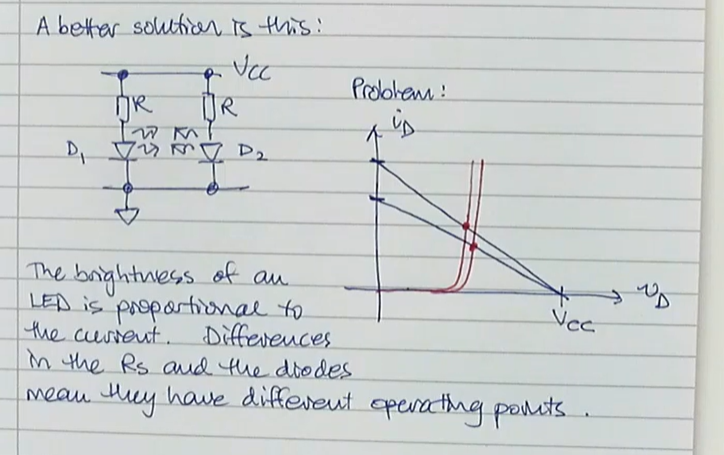 A better solution is this:
VCC
R
R
D1
D2
Problem:
iD
vD
VCC
The brightness of an
LED is proportional to
the current. Differences
in the Rs and the diodes
mean they have different operating points.